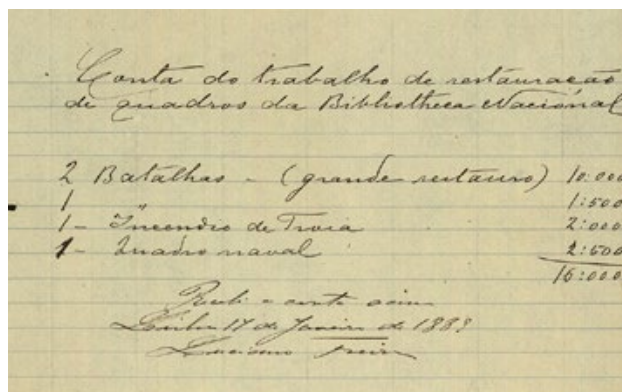 Conta do trabalho de restauração
de quadros da Bibliotheca Nacional
2 Batalhas - (grande restauro) 10:000
1 " 1:500
1 - Incendio de Troia 2:000
1 - Quadro naval 2:500
16:000
Lisboa 17 de Janeiro de 188
Luciano Freire